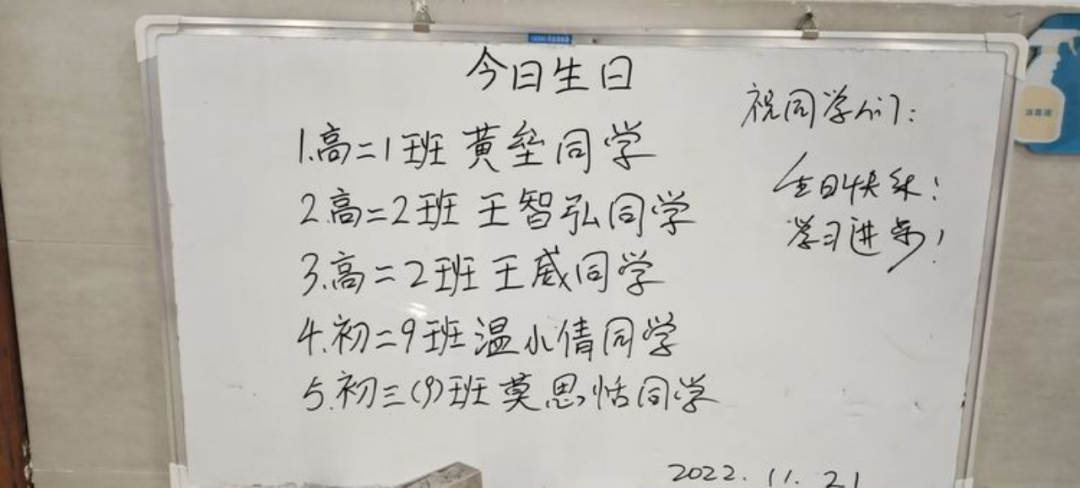 今日生日
1.高二1班 黄垒同学
2.高二2班 王智弘同学
3.高二2班 王威同学
4.初二9班 温小倩同学
5.初三(9)班 莫思恬同学
祝同学们:
生日快乐!
学习进步!
2022.11.21
消毒液